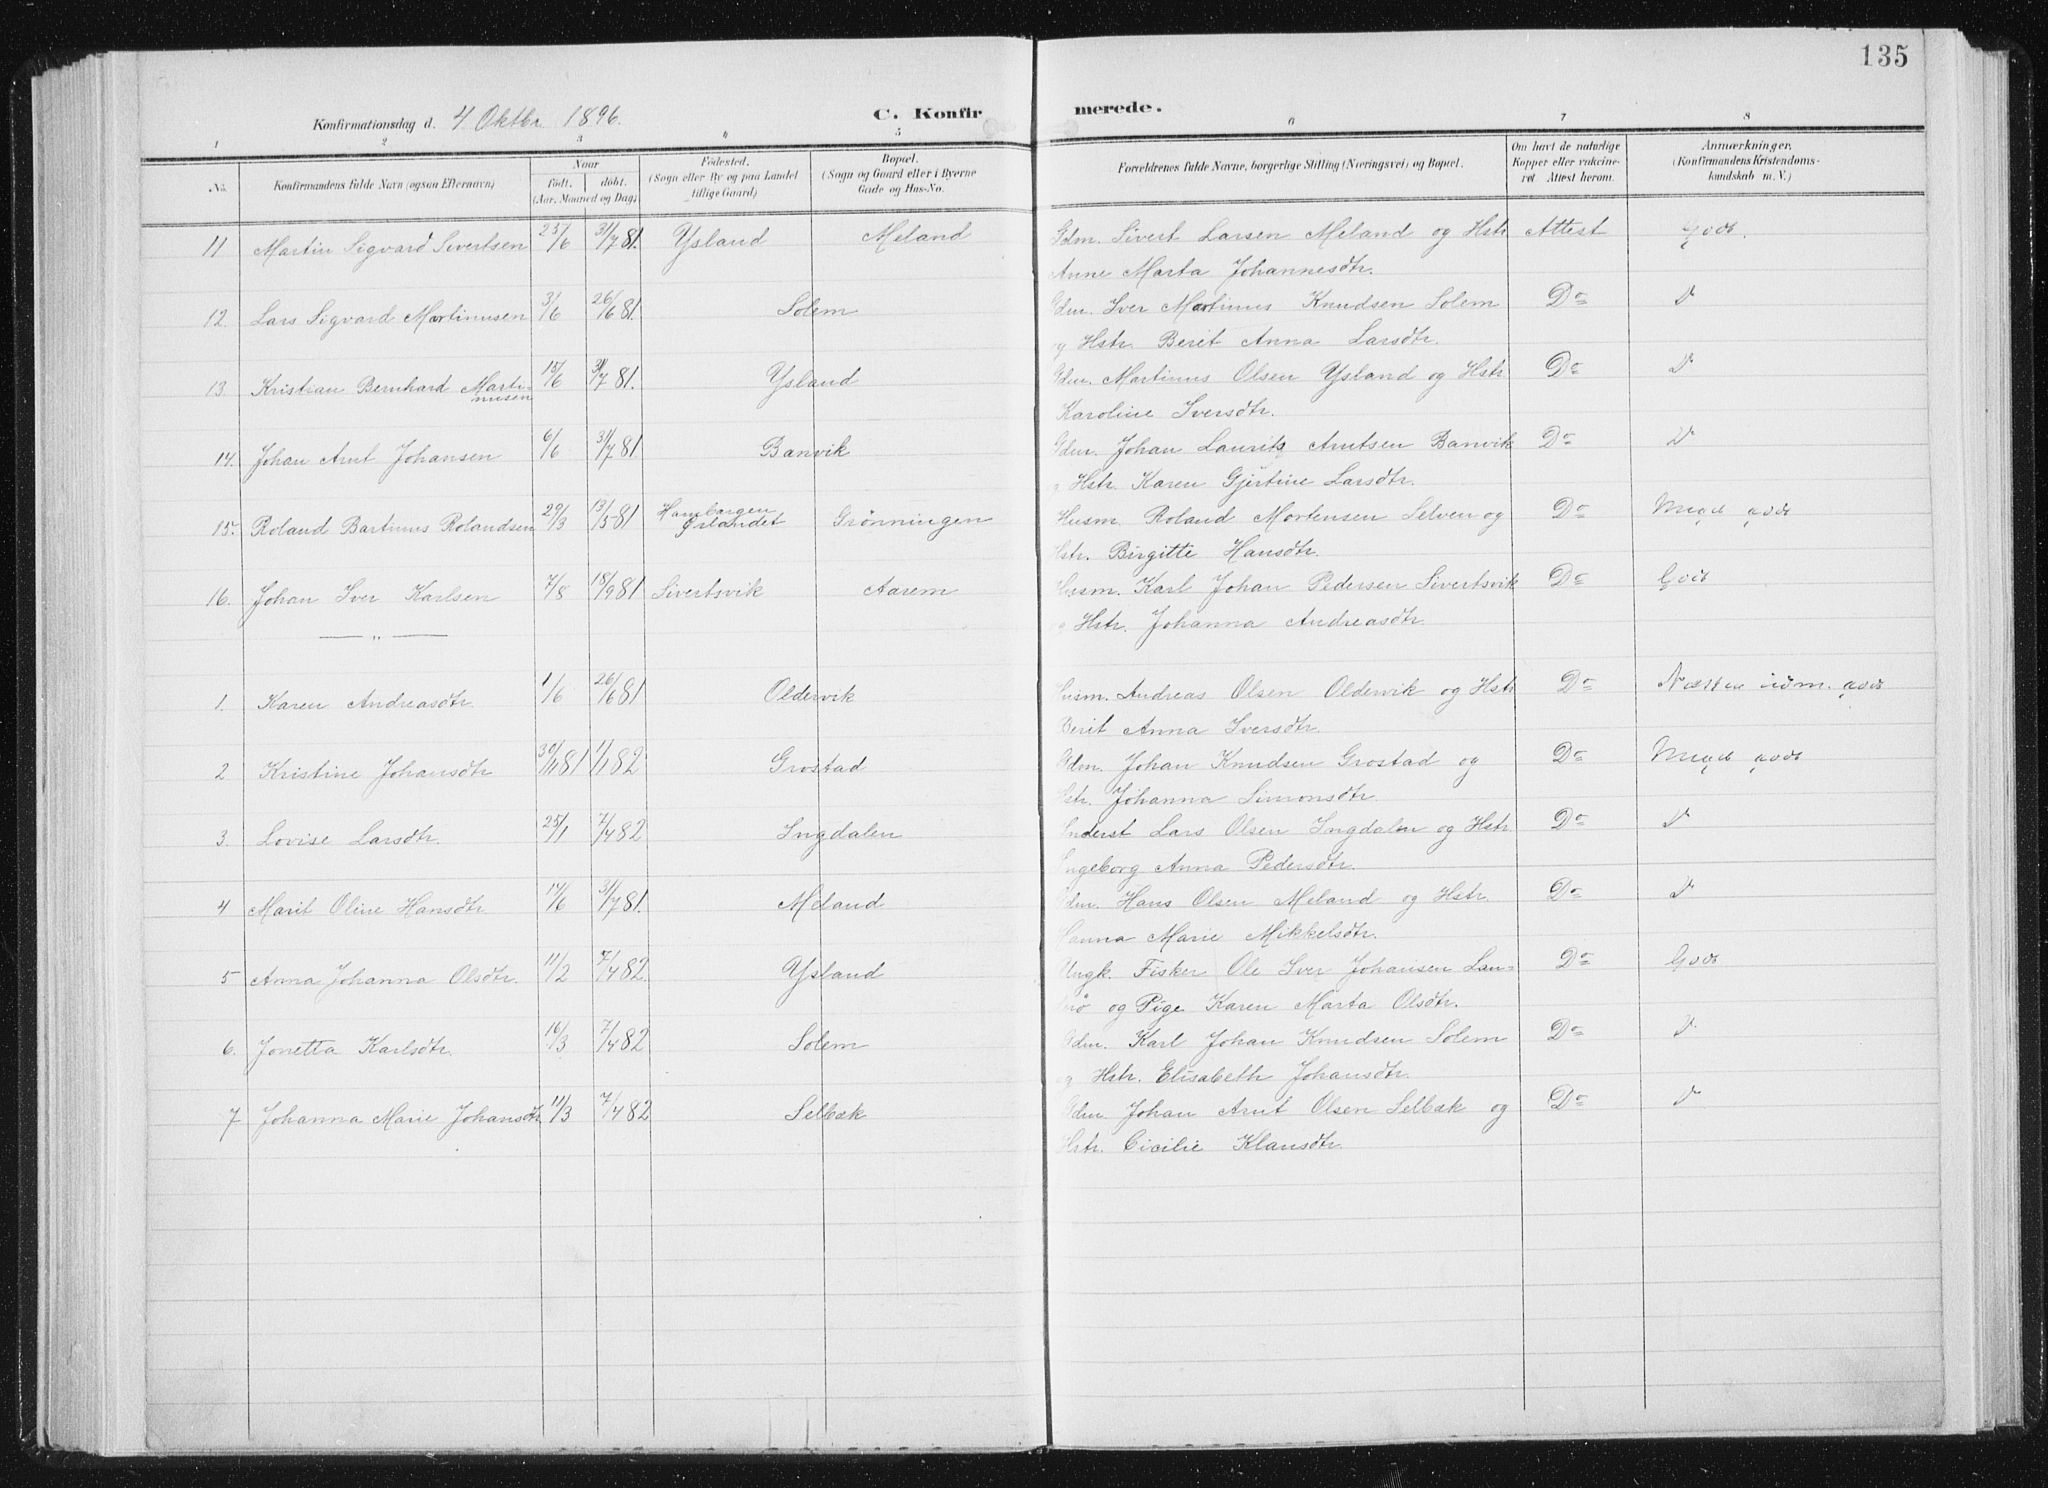 135
Konfirmationsdag d. 4 Oktbr 1896.
C. Konfirmerede.
1 2 3 4 5 6 7 8
No. Konfirmandens fulde Navn (ogsaa Efternavn) Naar født. døbt. (Aar, Maaned og Dag) Fødested. (Sogn eller By og paa Landet tillige Gaard) Bopæl. (Sogn og Gaard eller i Byerne Gade og Hus-No. Forældrenes fulde Navne, borgerlige Stilling (Næringsvei) og Bopæl. Om havt de naturlige Kopper eller vaksineret. Attest herom. Anmærkninger. (Konfirmandens Kristendomskundskab m. V.)
11 Martin Sigvard Sivertsen 25/6 31/7 81. Ysland Meland Gdm. Sivert Larsen Meland og Hstr Attest Godt.
Anne Marta Johannesdtr.
12. Lars Sigvard Martinusen 3/6 26/6 81. Solem Gdm. Iver Martinus Knudsen Solem Do D
og Hstr. Berit Anna Larsdtr.
13. Kristian Bernhard Martinusen 15/6 31/7 81. Ysland Gdm. Martinus Olsen Ysland og Hstr Do D
Karoline Iversdtr.
14. Johan Arnt Johansen 6/6 31/7 81 Banvik Gdm. Johan Lauritz Arntsen Banvik Do D
og Hstr. Karen Gjertine Larsdtr.
15. Roland Bartinus Rolandsen 29/3 13/5 81 Hambargen Ørlandet Grønningen Husm. Roland Mortensen Selven og Do Meget godt
Hstr. Birgitte Hansdtr.
16. Johan Iver Karlsen 7/8 18/9 81. Sivertsvik Aarem Husm. Karl Johan Pedersen Sivertsvik Do Godt
og Hstr. Johanna Andreasdtr.
— " —
1. Karen Andreasdtr. 1/6 26/6 81 Oldervik Husm. Andreas Olsen Oldervik og Hstr Do Næsten udm. godt
Berit Anna Iversdtr.
2 Kristine Johansdtr 30/11 81 1/1 82 Grostad Gdm. Johan Knudsen Grostad og Do Meget godt
Hstr. Johanna Simonsdtr.
3. Lovise Larsdtr. 25/1 7/4 82 Ingdalen Inderst Lars Olsen Ingdalen og Hstr. Do D
Ingeborg Anna Pedersdtr.
4 Marit Oline Hansdtr 14/6 31/7 81. Meland Gdm. Hans Olsen Meland og Hstr. Do D
Hanna Marie Mikkelsdtr.
5 Anna Johanna Olsdtr. 11/2 7/4 82. Ysland Ungk. Fisker Ole Iver Johansen Lan- Do Godt
og Pige Karen Marta Olsdtr.
6. Jonetta Karlsdtr. 16/3 7/4 82 Solem Gdm. Karl Johan Knudsen Solem Do D
og Hstr. Elisabeth Johansdtr.
7 Johanna Marie Johansdtr. 11/3 7/4 82 Selbæk Gdm. Johan Arnt Olsen Selbæk og Do D
Hstr. Cicilie Klausdtr.